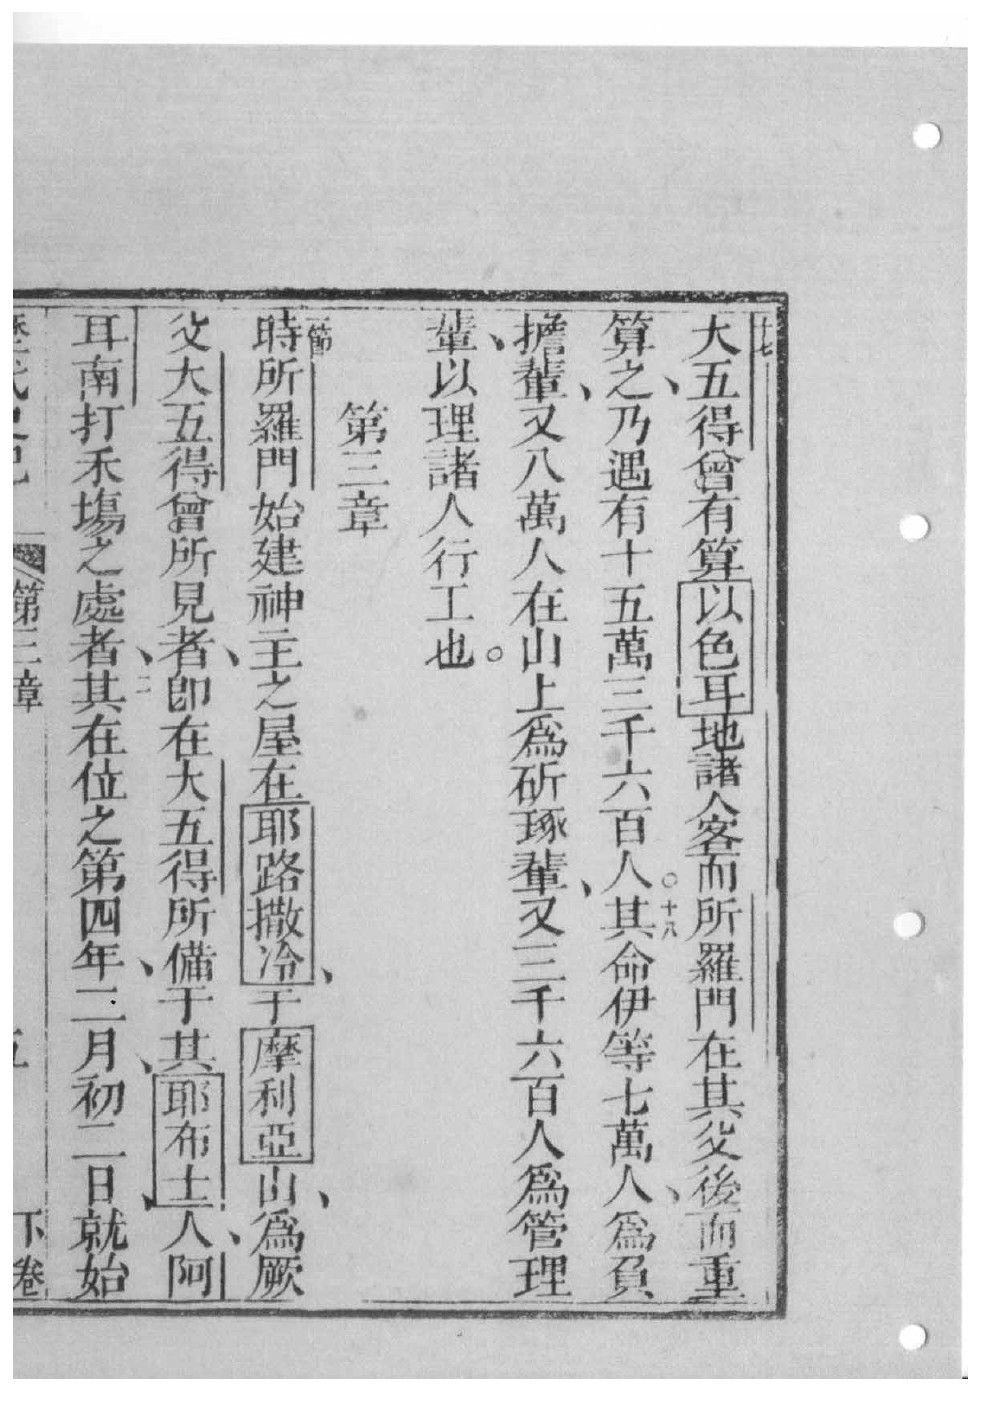 十七大五得曾有算以色耳地諸人客而所羅門在其父後而重
算之、乃遇有十五萬三千六百人。十八其命伊等七萬人、爲負
擔輩、又八萬人在山上爲斫琢輩、又三千六百人爲管理
輩、以理諸人行工也。
第三章
一節時所羅門始建神主之屋在耶路撒冷、于摩利亞山、爲厥
父大五得曾所見者、卽在大五得所備于其耶布士人、阿
耳南打禾塲之處者、二其在位之第四年、二月、初二日、就始
歷代史記 第三章 五 下卷